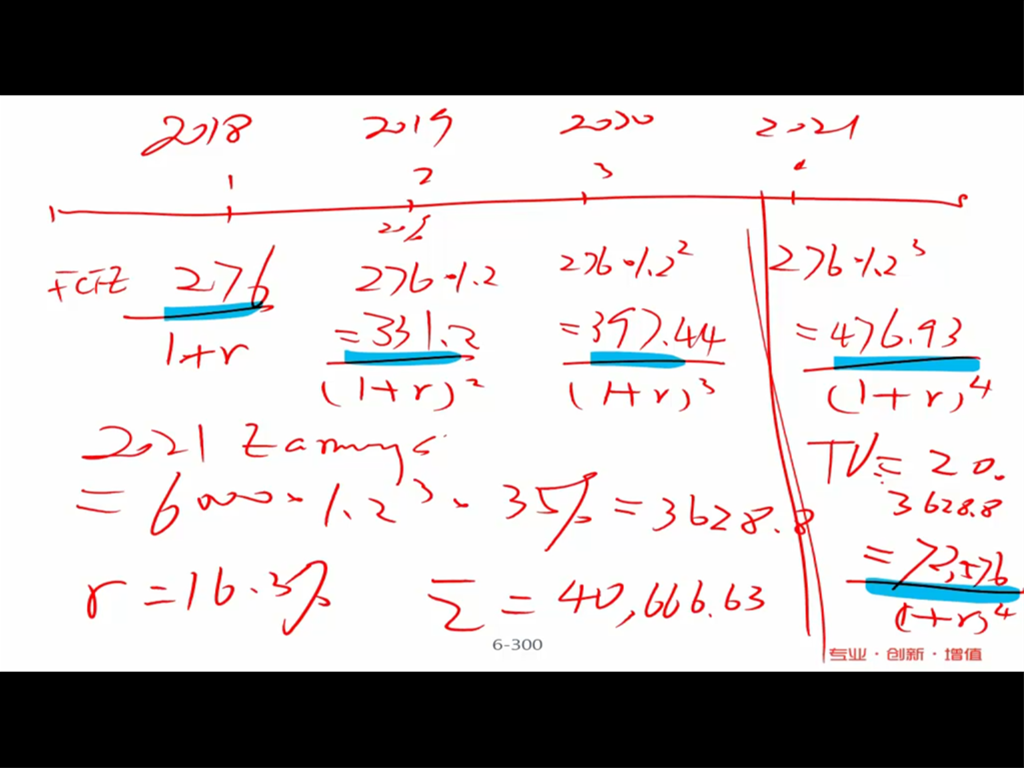 2018 2019 2020 2021
1 2 3 4
FCFE 276 276·1.2 276·1.2² 276·1.2³
=331.2 =397.44 =476.93
1+r (1+r)² (1+r)³ (1+r)⁴
2021 Earnings
= 6000 · 1.2³ · 35% = 3628.8
TV = 20·
3628.8
= 72,576
(1+r)⁴
r = 16.3% Σ = 40,666.63
6-300
专业·创新·增值